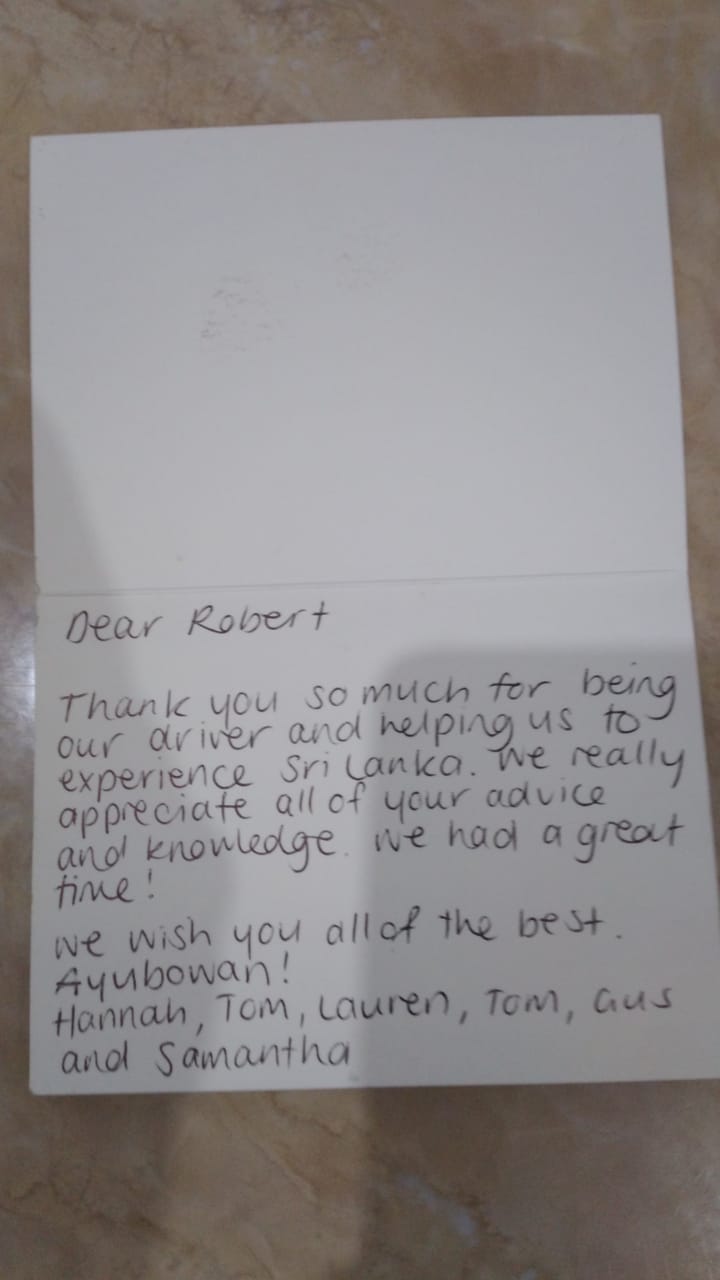 Dear Robert
Thank you so much for being
our driver and helping us to
experience Sri Lanka. We really
appreciate all of your advice
and knowledge. We had a great
time!
We wish you all of the best.
Ayubowan!
Hannah, Tom, Lauren, Tom, Gus
and Samantha